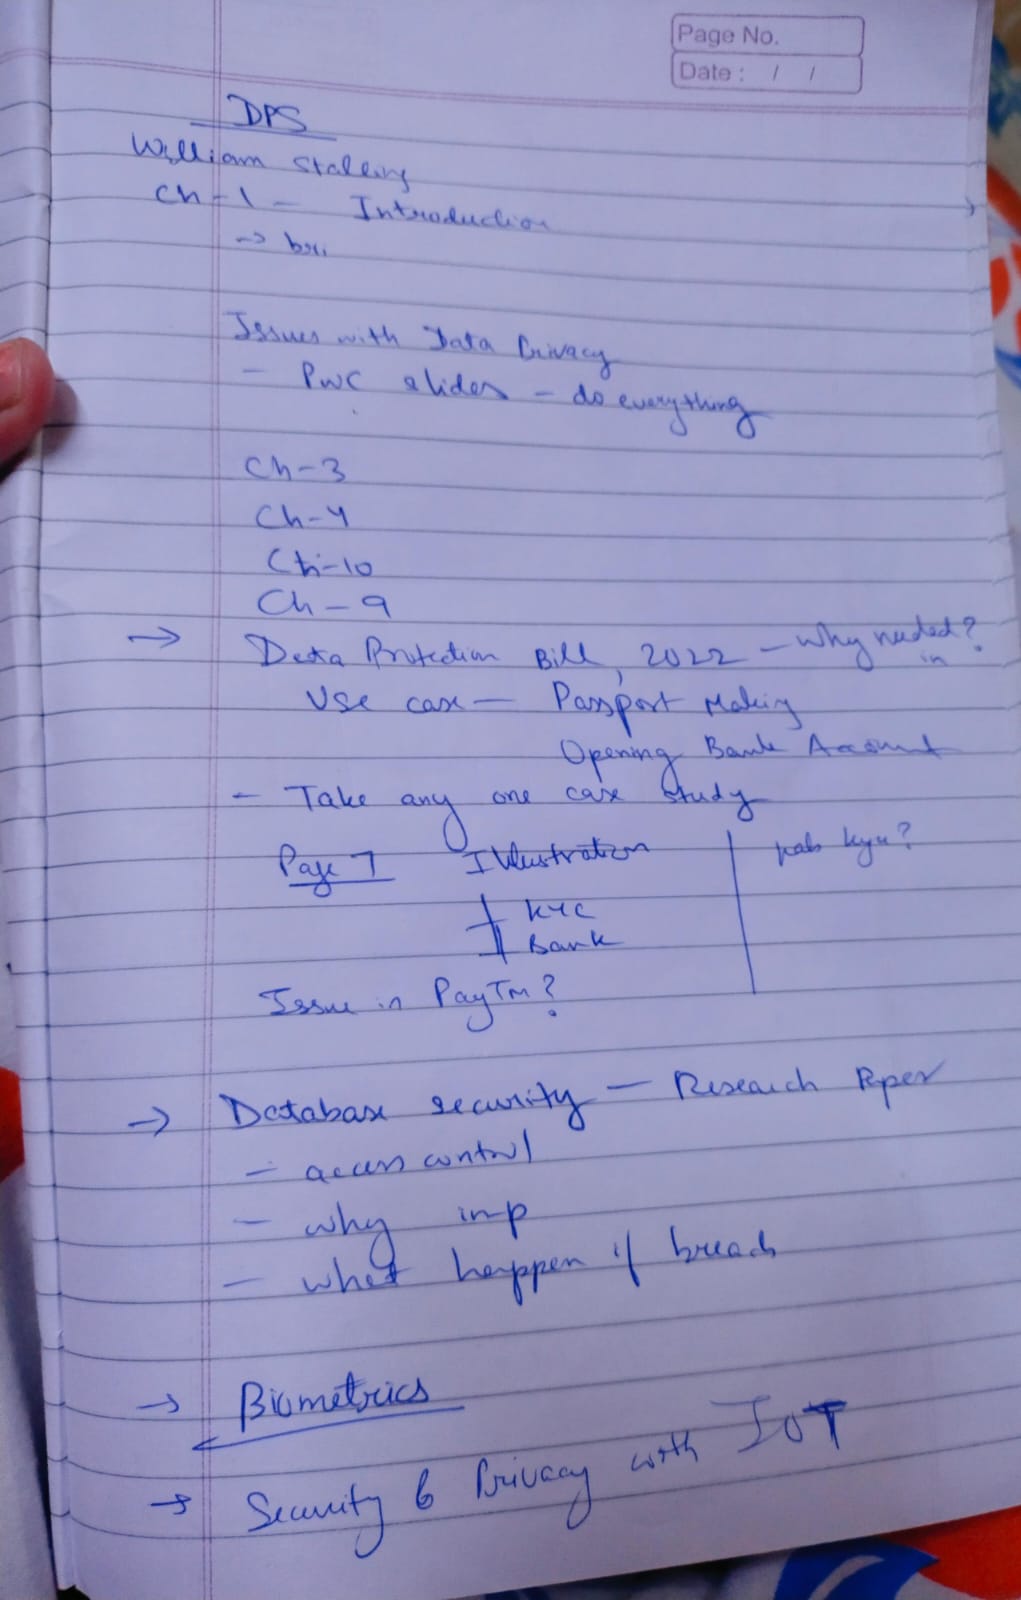 Page No.
Date : / /
DPS
William Stalling
Ch-1 - Introduction
→ bri
Issues with Data Privacy
- PWC slides - do everything
Ch-3
Ch-4
Ch-10
Ch-9
→ Data Protection Bill, 2022 - Why needed?
in
Use case - Passport Making
Opening Bank Account
- Take any one case study
Page 7 Illustration kyu?
KYC
Bank
Issue in PayTM?
→ Database security - Research Paper
- access control
- why imp
- what happen if breach
→ Biometrics
→ Security & Privacy with IOT